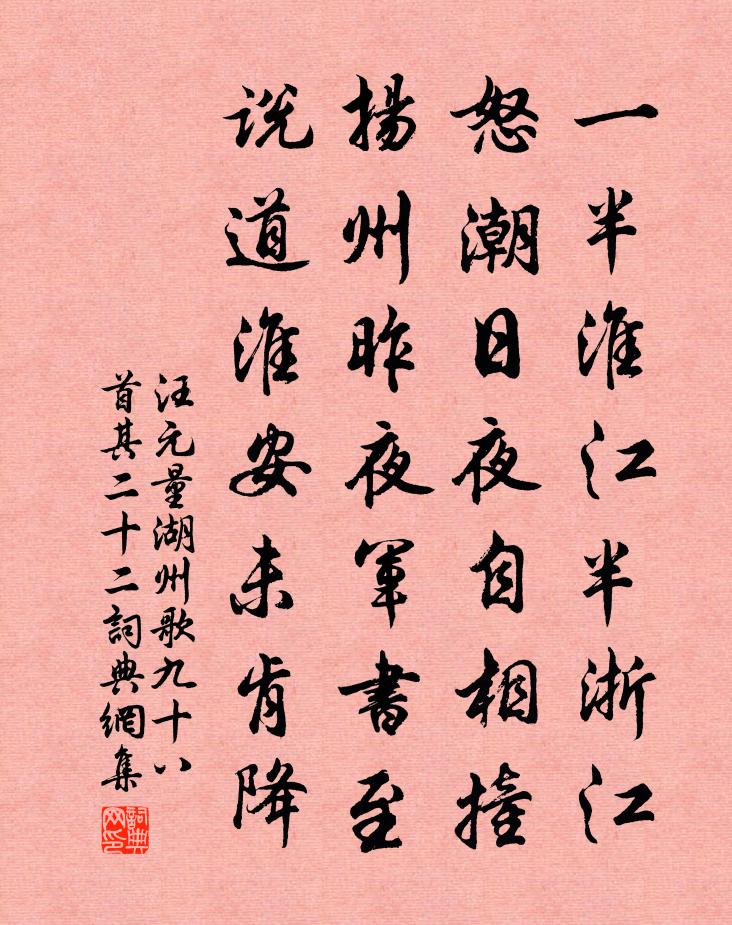 一半淮江半浙江
怒潮日夜自相撞
揚州昨夜軍書至
説道淮安未肯降
汪元量湖州歌九十八
首其二十二詞典網集
詞典
网印